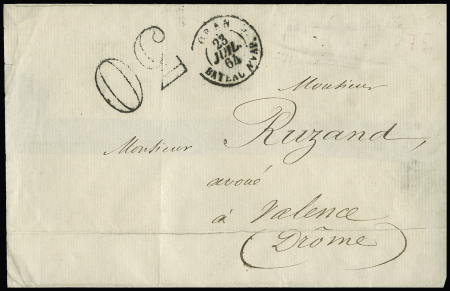 50
ORAN
23
JUIL.
64
BATEAU A VAP.
Monsieur
Monsieur Ruzand,
avoué
à Valence
Drôme